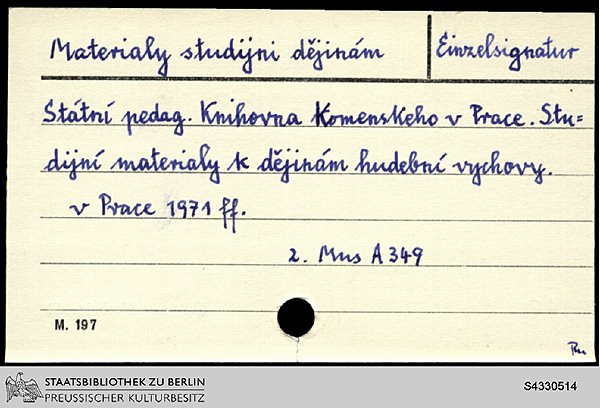 Materialy studijni dějinám
Einzelsignatur
Státní pedag. Knihovna Komenskeho v Prace. Stu=
dijní materialy k dějinám hudební vychovy.
v Prace 1971 ff.
2. Mus A 349
M. 197
STAATSBIBLIOTHEK ZU BERLIN
PREUSSISCHER KULTURBESITZ
S4330514